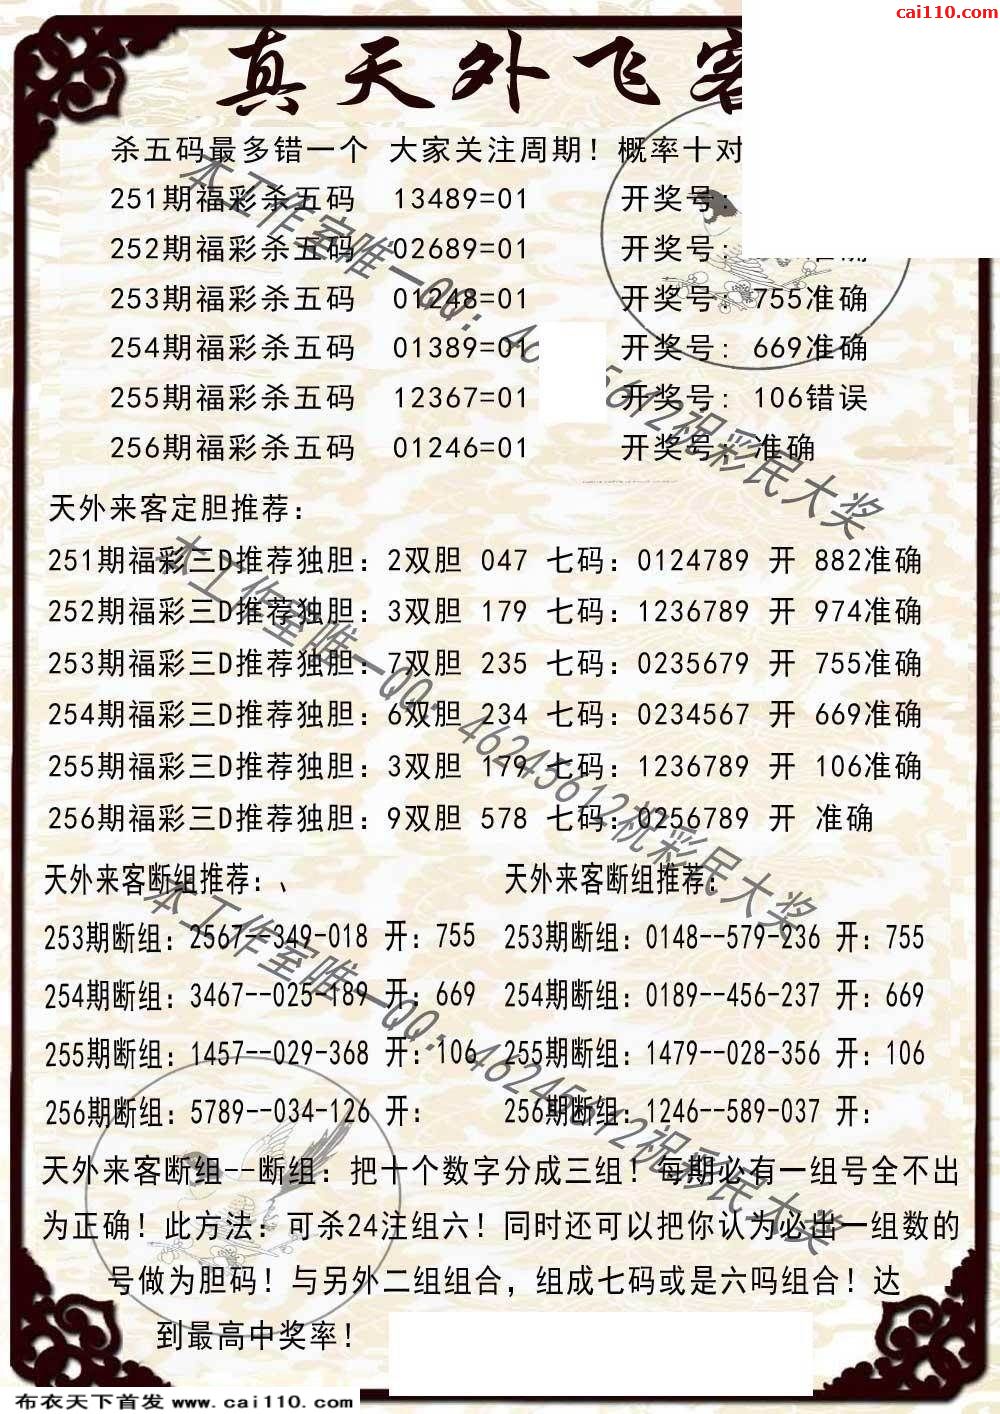 cai110.com
真天外飞客
杀五码最多错一个 大家关注周期！概率十对
251期福彩杀五码 13489=01 开奖号:
252期福彩杀五码 02689=01 开奖号: 准确
253期福彩杀五码 01248=01 开奖号: 755准确
254期福彩杀五码 01389=01 开奖号: 669准确
255期福彩杀五码 12367=01 开奖号: 106错误
256期福彩杀五码 01246=01 开奖号: 准确
天外来客定胆推荐:
251期福彩三D推荐独胆: 2双胆 047 七码: 0124789 开 882准确
252期福彩三D推荐独胆: 3双胆 179 七码: 1236789 开 974准确
253期福彩三D推荐独胆: 7双胆 235 七码: 0235679 开 755准确
254期福彩三D推荐独胆: 6双胆 234 七码: 0234567 开 669准确
255期福彩三D推荐独胆: 3双胆 179 七码: 1236789 开 106准确
256期福彩三D推荐独胆: 9双胆 578 七码: 0256789 开 准确
天外来客断组推荐: 、 天外来客断组推荐:
253期断组: 2567--349-018 开: 755 253期断组: 0148--579-236 开: 755
254期断组: 3467--025-189 开: 669 254期断组: 0189--456-237 开: 669
255期断组: 1457--029-368 开: 106 255期断组: 1479--028-356 开: 106
256期断组: 5789--034-126 开: 256期断组: 1246--589-037 开:
天外来客断组--断组: 把十个数字分成三组! 每期必有一组号全不出
为正确! 此方法: 可杀24注组六! 同时还可以把你认为必出一组数的
号做为胆码! 与另外二组组合, 组成七码或是六吗组合! 达
到最高中奖率!
本工作室唯一QQ: 46245612祝彩民大奖
本工作室唯一QQ: 46245612祝彩民大奖
本工作室唯一QQ: 46245612祝彩民大奖
布衣天下首发 www.cai110.com